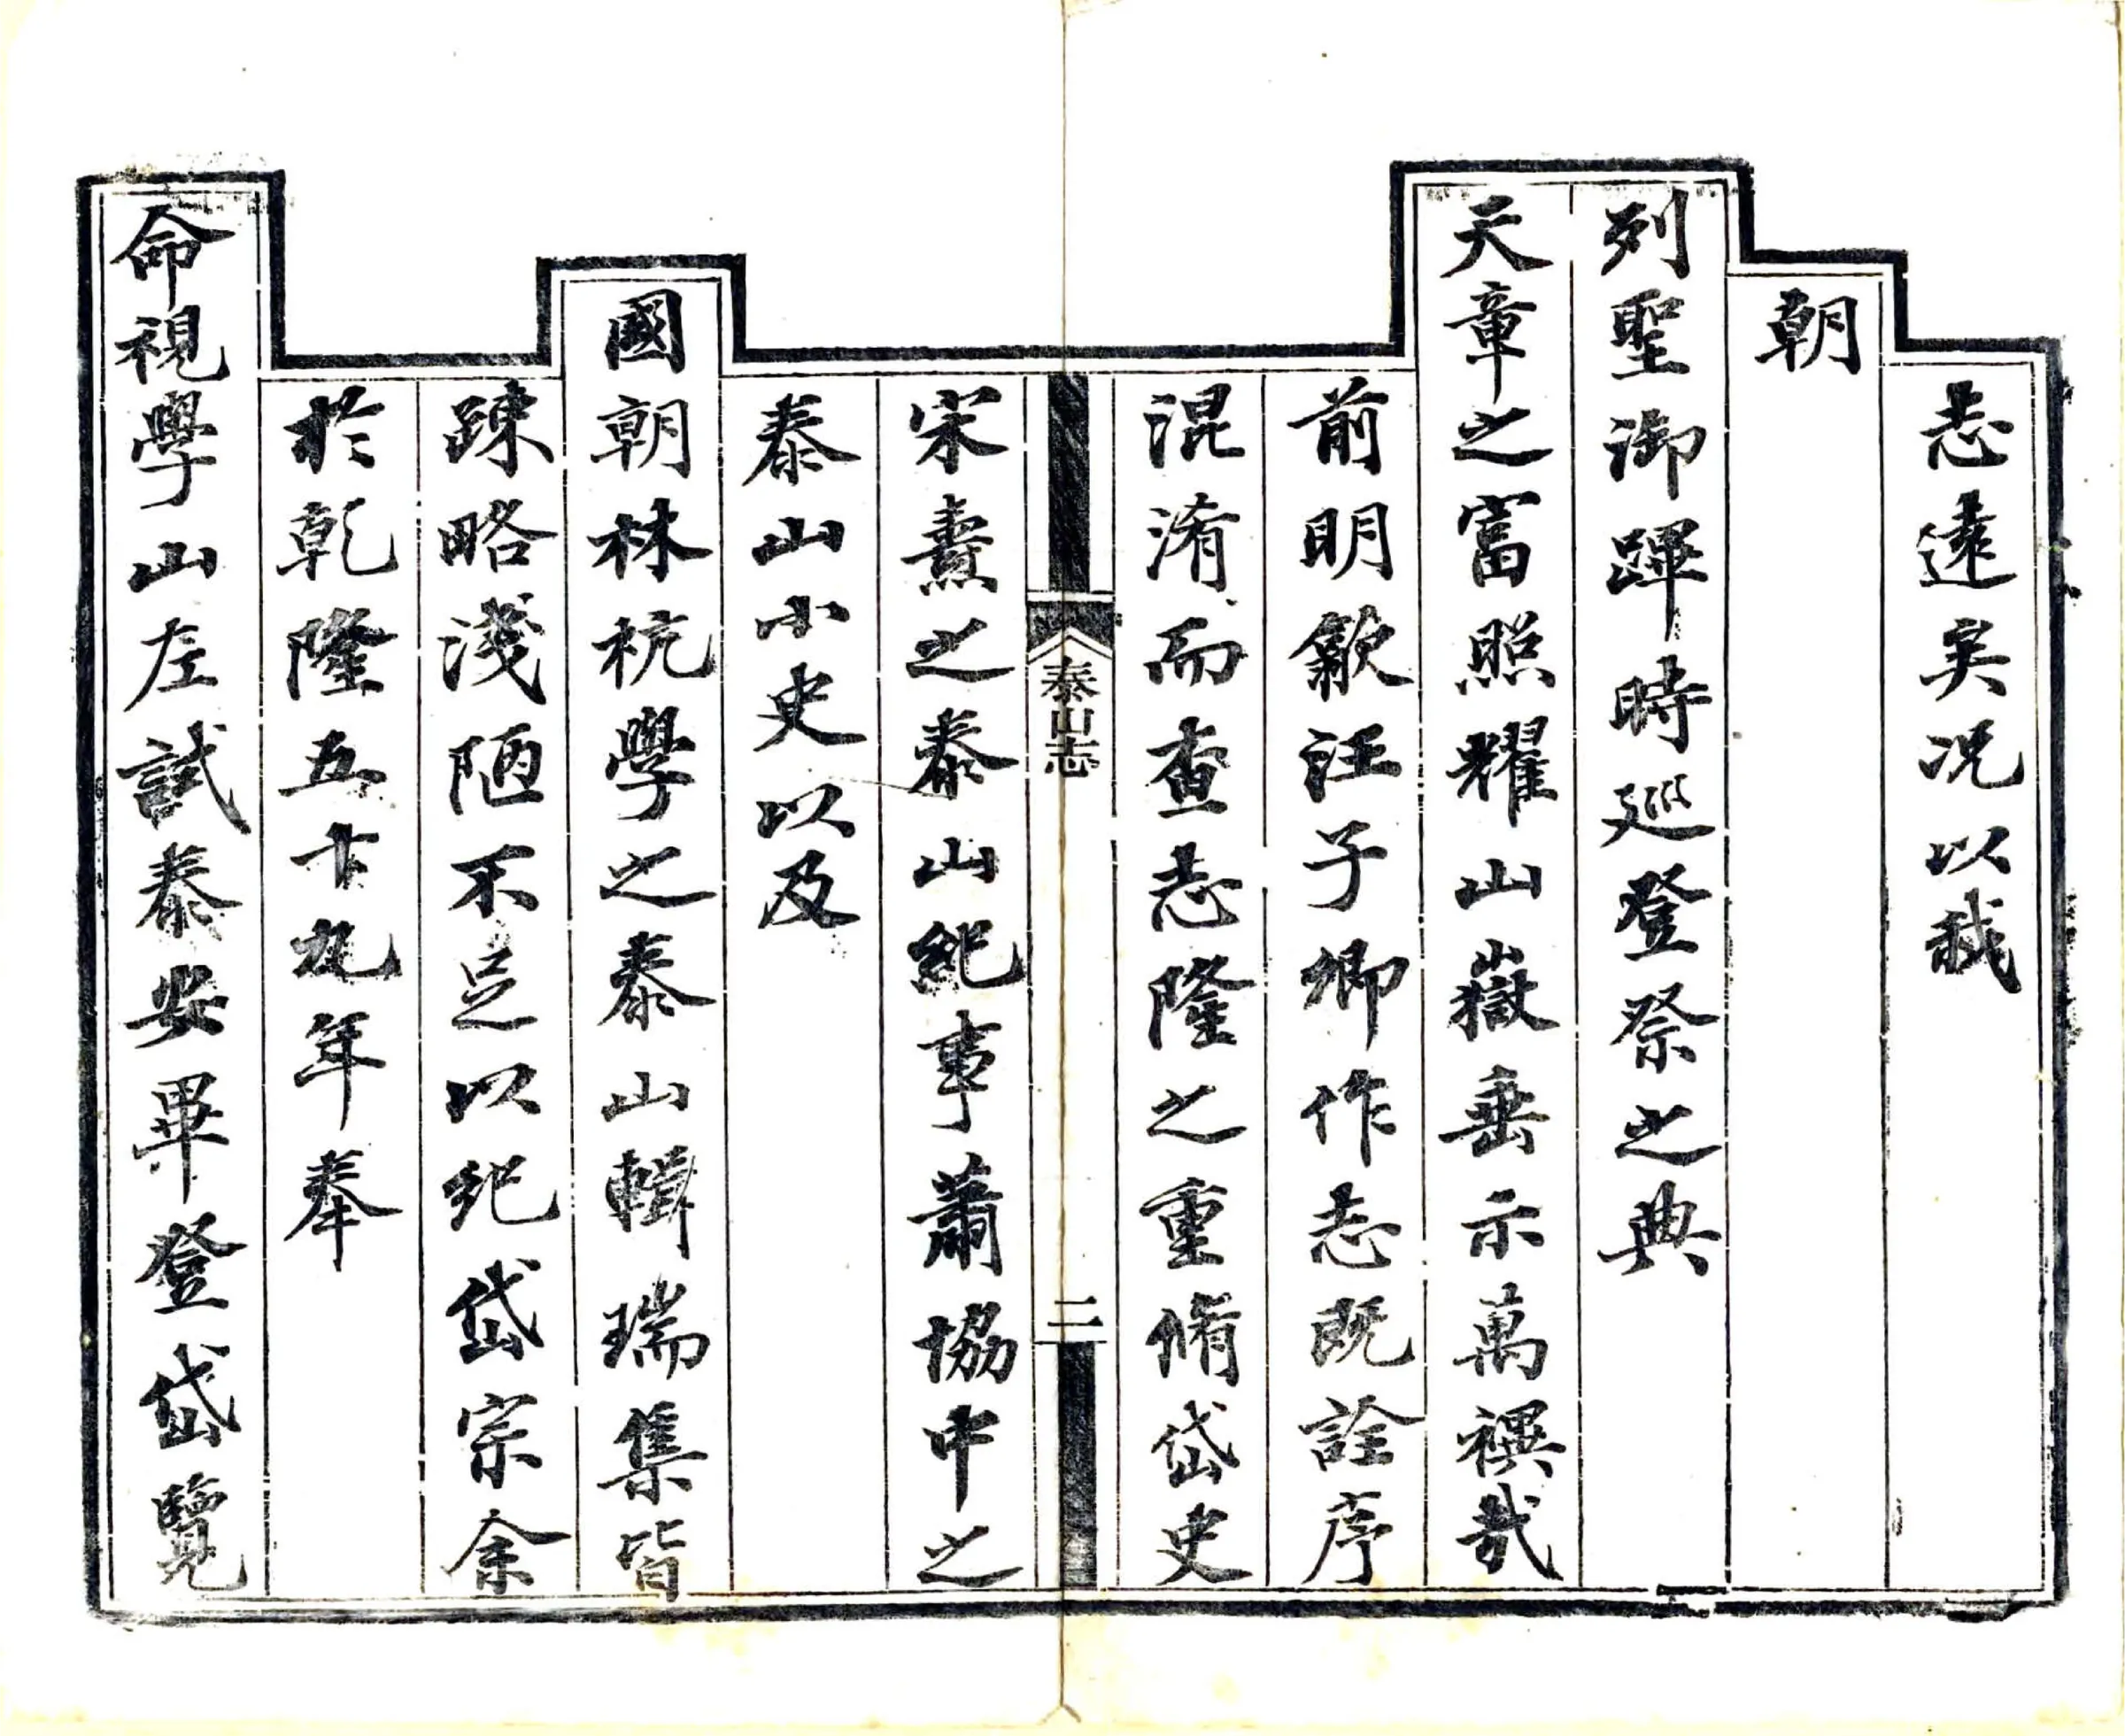 志遠矣况以我
朝
列聖御蹕時廵登祭之典
天章之富照耀山嶽垂示萬禩哉
前明歙汪子卿作志既詮序
混淆而查志隆之重脩岱史
泰山志
二
宋燾之泰山紀事蕭協中之
泰山小史以及
國朝林杭學之泰山輯瑞集皆
踈略淺陋不足以紀岱宗余
於乾隆五十九年奉
命視學山左試泰安畢登岱覽